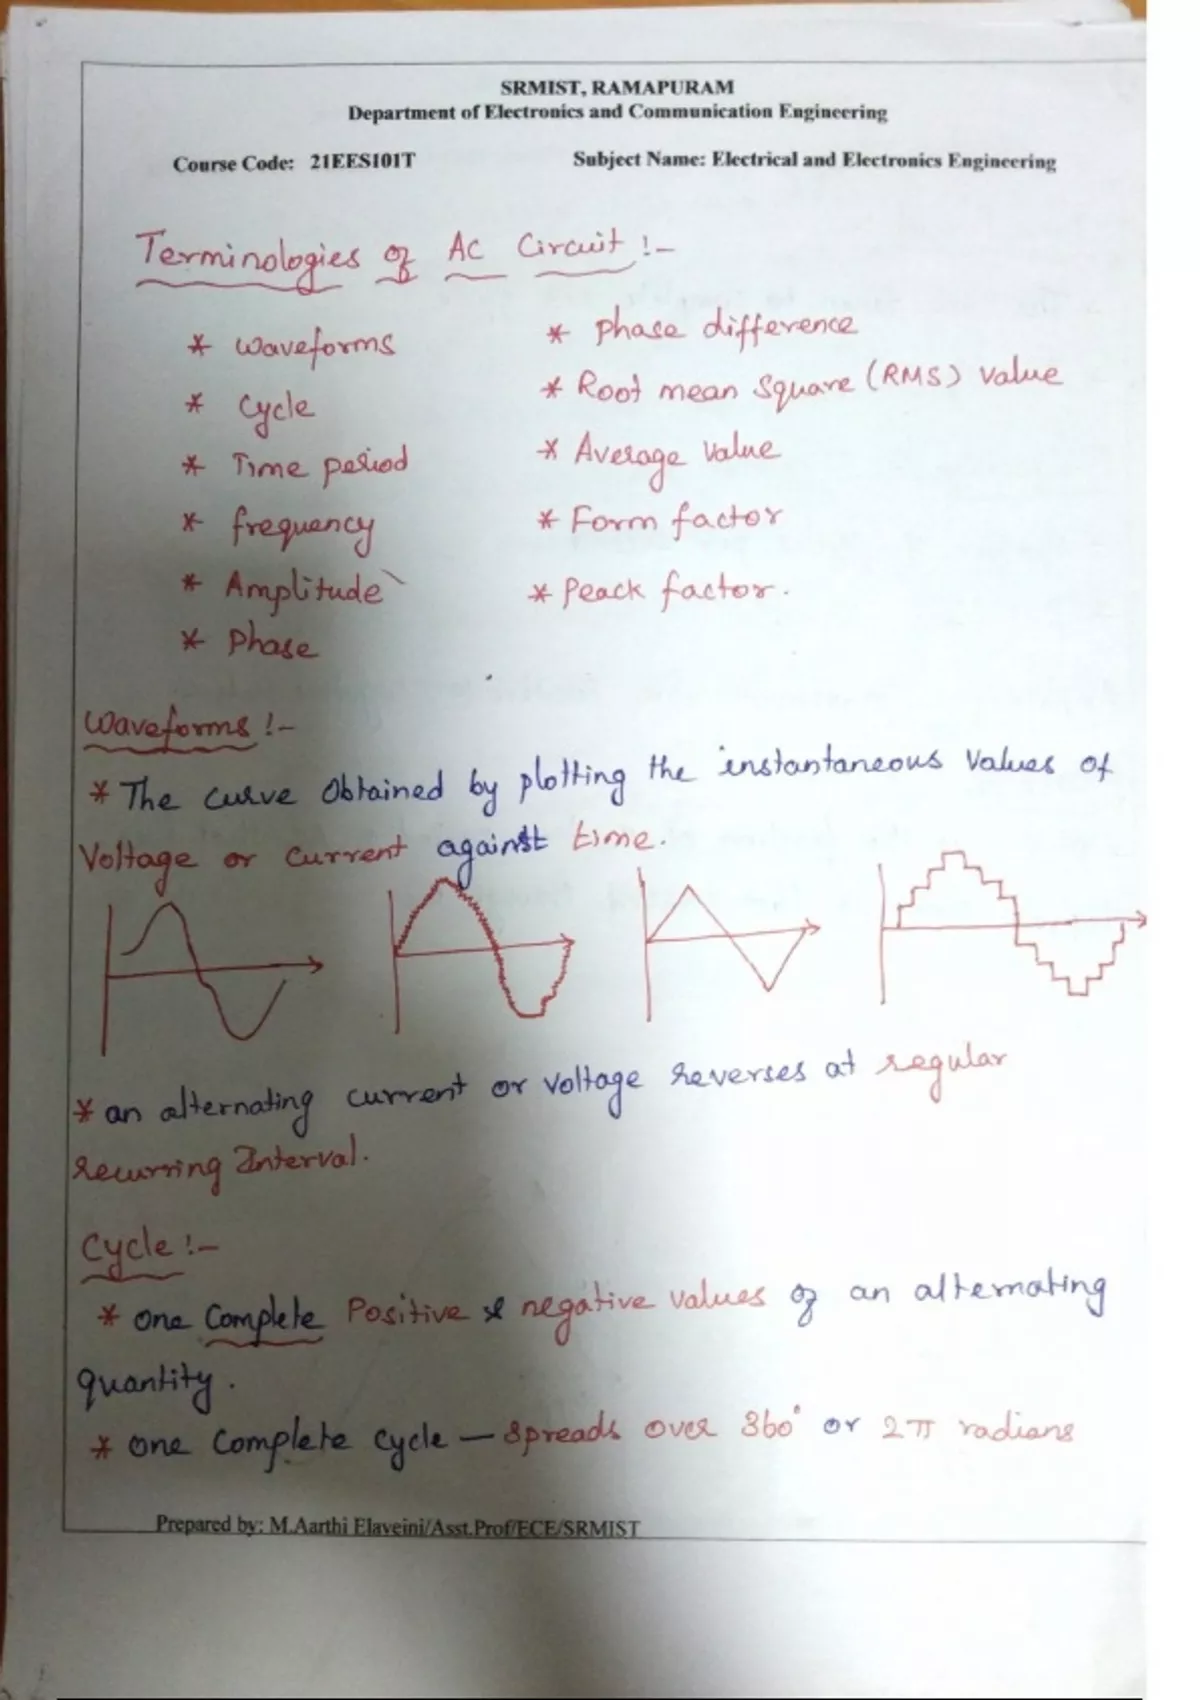 SRMIST, RAMAPURAM
Department of Electronics and Communication Engineering
Course Code: 21EES101T Subject Name: Electrical and Electronics Engineering
Terminologies of AC Circuit :-
* Waveforms
* Cycle
* Time period
* frequency
* Amplitude
* Phase
* Phase difference
* Root mean Square (RMS) value
* Average Value
* Form factor
* Peack factor.
Waveforms :-
* The curve Obtained by plotting the instantaneous Values of
Voltage or Current against time.
* an alternating current or Voltage reverses at regular
recurring Interval.
Cycle :-
* One Complete Positive & negative values of an alternating
quantity.
* One Complete Cycle — spreads over 360° or 2π radians
Prepared by: M.Aarthi Elaveini/Asst.Prof/ECE/SRMIST